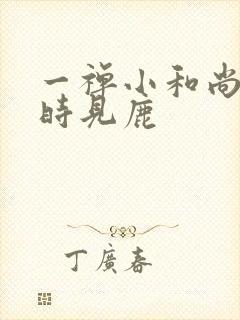 一禅小和尚
時見鹿
丁廣春